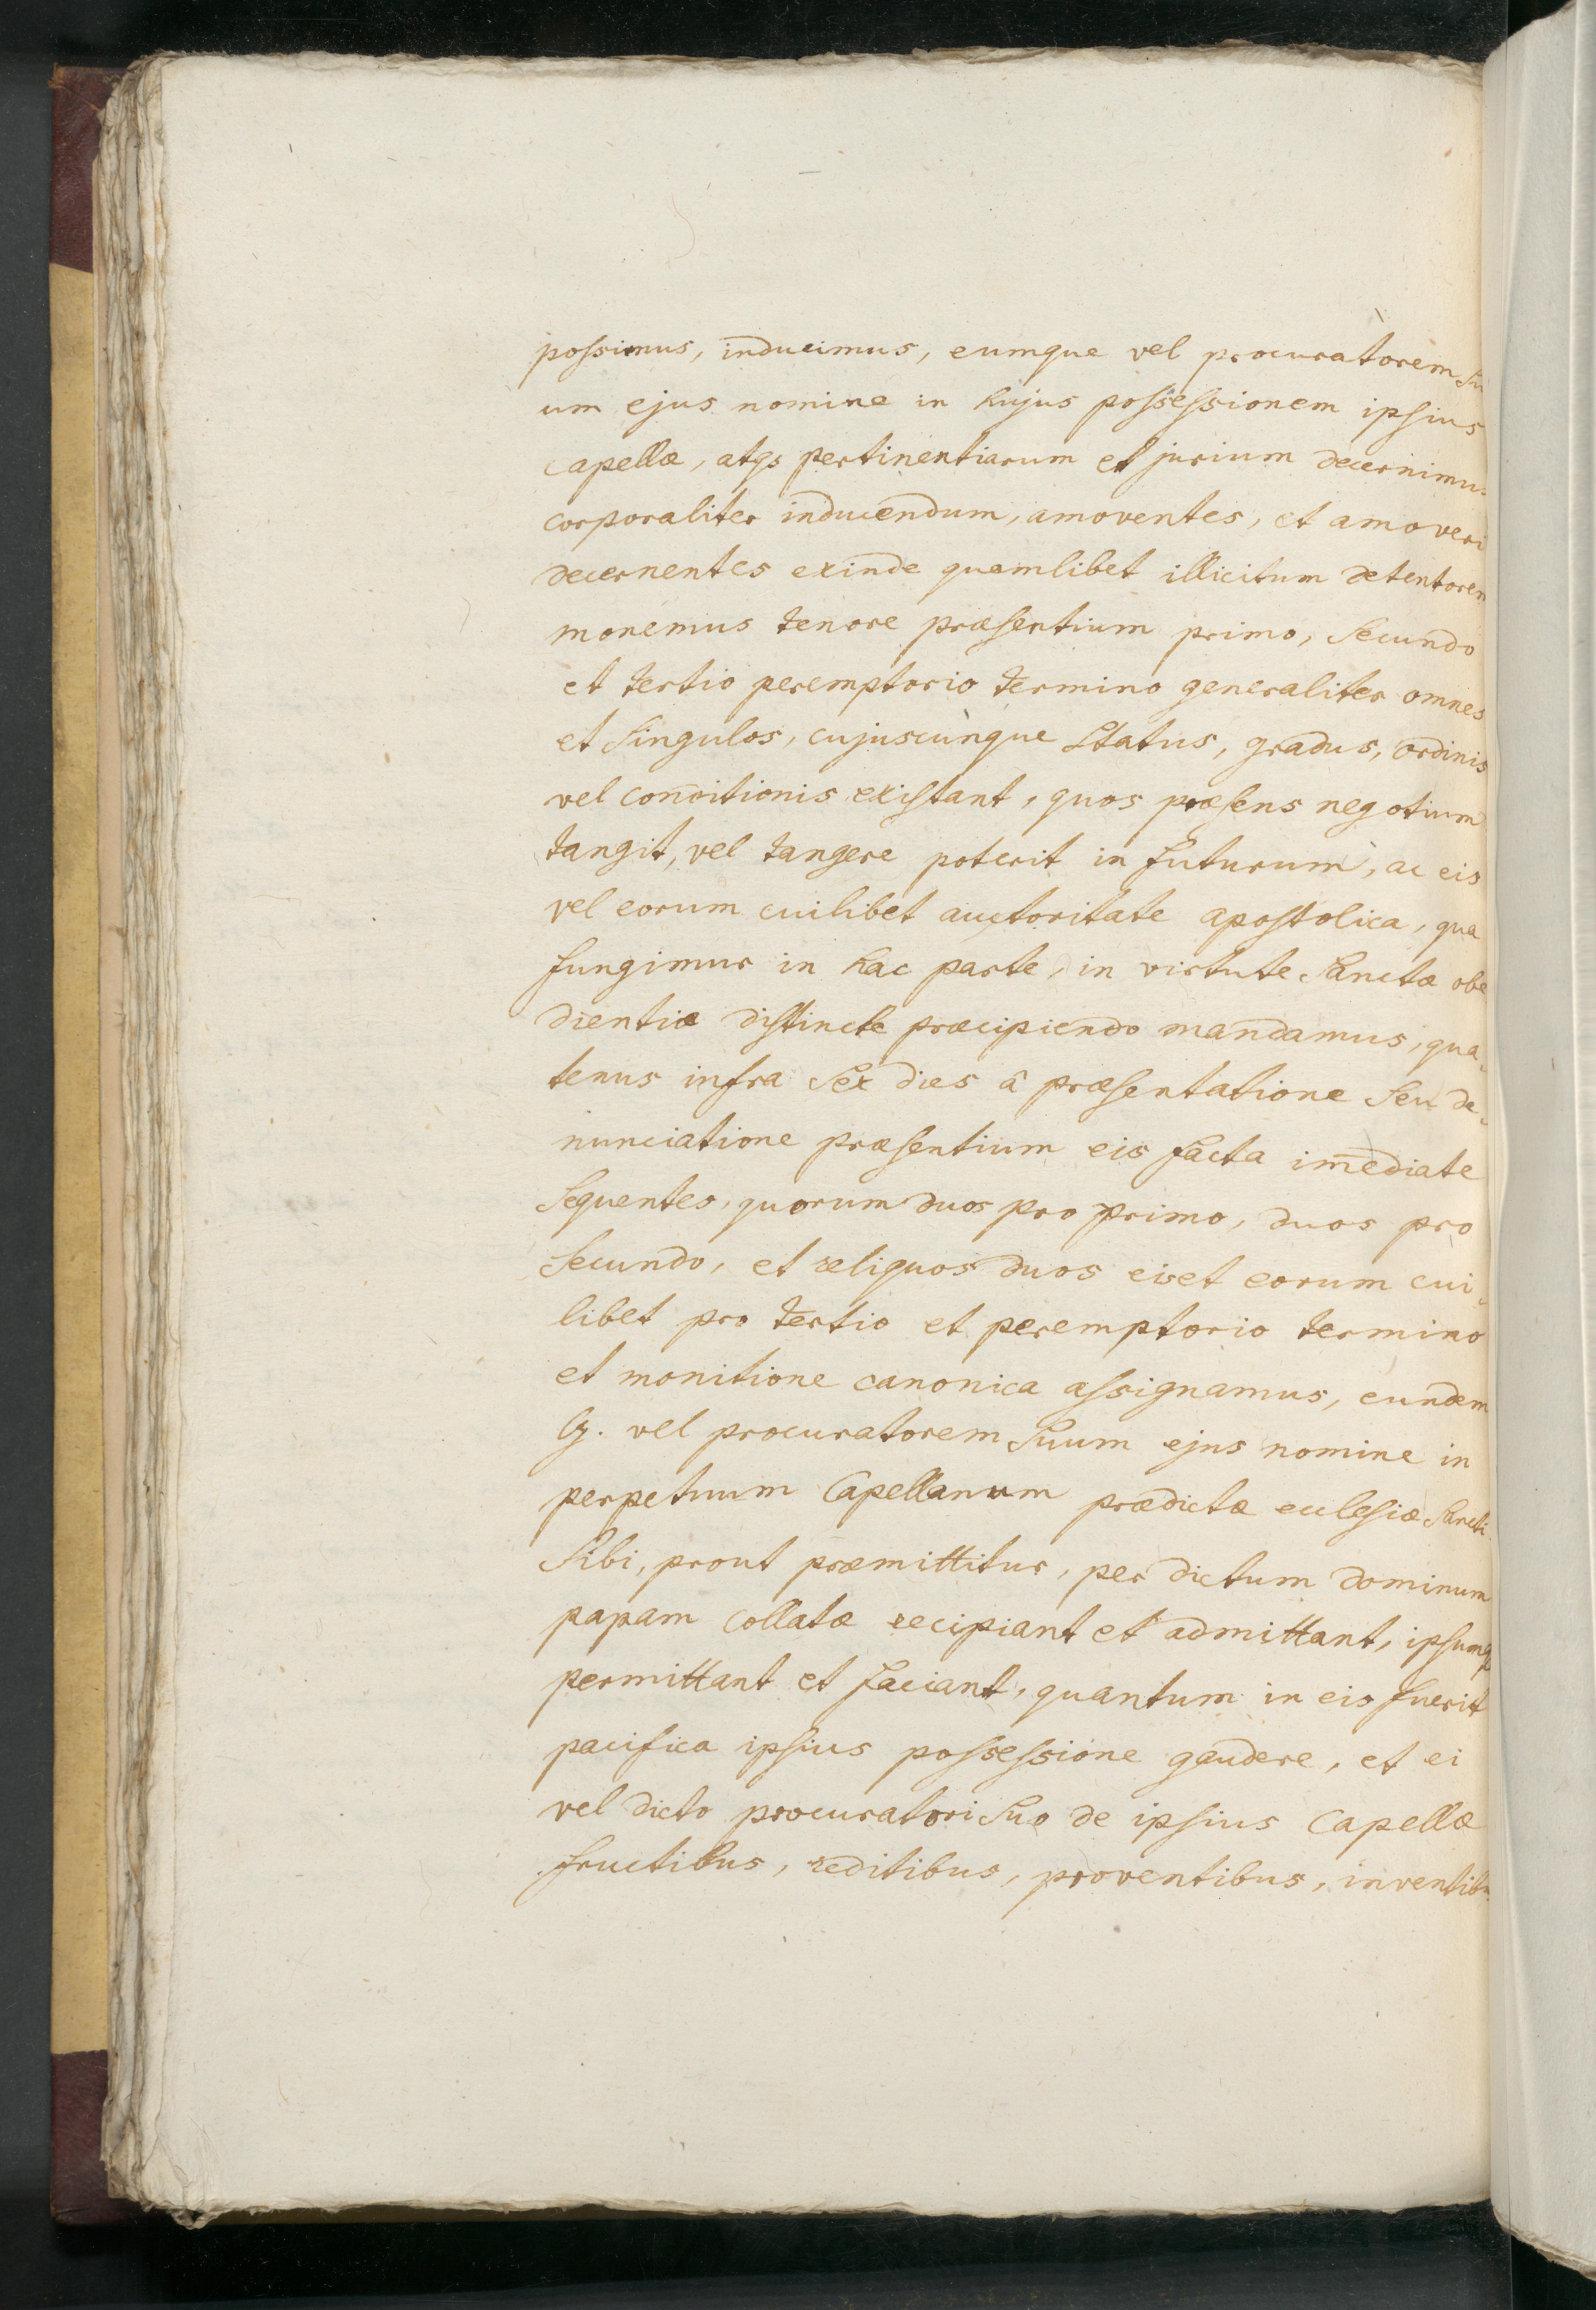 possimus, inducimus, eumque vel procuratorem su
um ejus nomine in hujus possessionem ipsius
capellæ, atqs pertinentiarum et jurium decernimus
corporaliter inducendum, amoventes, et amoveri
decernentes exinde quemlibet illicitum detentorem
monemus tenore præsentium primo, secundo
et tertio peremptorio termino generaliter omnes
et singulos, cujuscunque status, gradus, ordinis
vel conditionis existant, quos præsens negotium
tangit, vel tangere poterit in futurum, ac eis
vel eorum cuilibet auctoritate apostolica, qua
fungimur in hac parte, in virtute sanctæ obe
dientiæ distincte præcipiendo mandamus, qua-
tenus infra sex dies â præsentatione seu de-
nunciatione præsentium eis facta im̄ediate
sequentes, quorum duos pro primo, duos pro
secundo, et reliquos duos eis et eorum cui-
libet pro tertio et peremptorio termino
et monitione canonica assignamus, eundem
G. vel procuratorem suum ejus nomine in
perpetuum Capellanum prædictæ ecclesiæ sancti
sibi, prout præmittitur, per dictum dominum
papam collatæ recipiant et admittant, ipsumq
permittant et faciant, quantum in eis fuerit
pacifica ipsius possessione gaudere, et ei
vel dicto procuratori suo de ipsius Capellæ
fructibus, reditibus, proventibus, inventibu